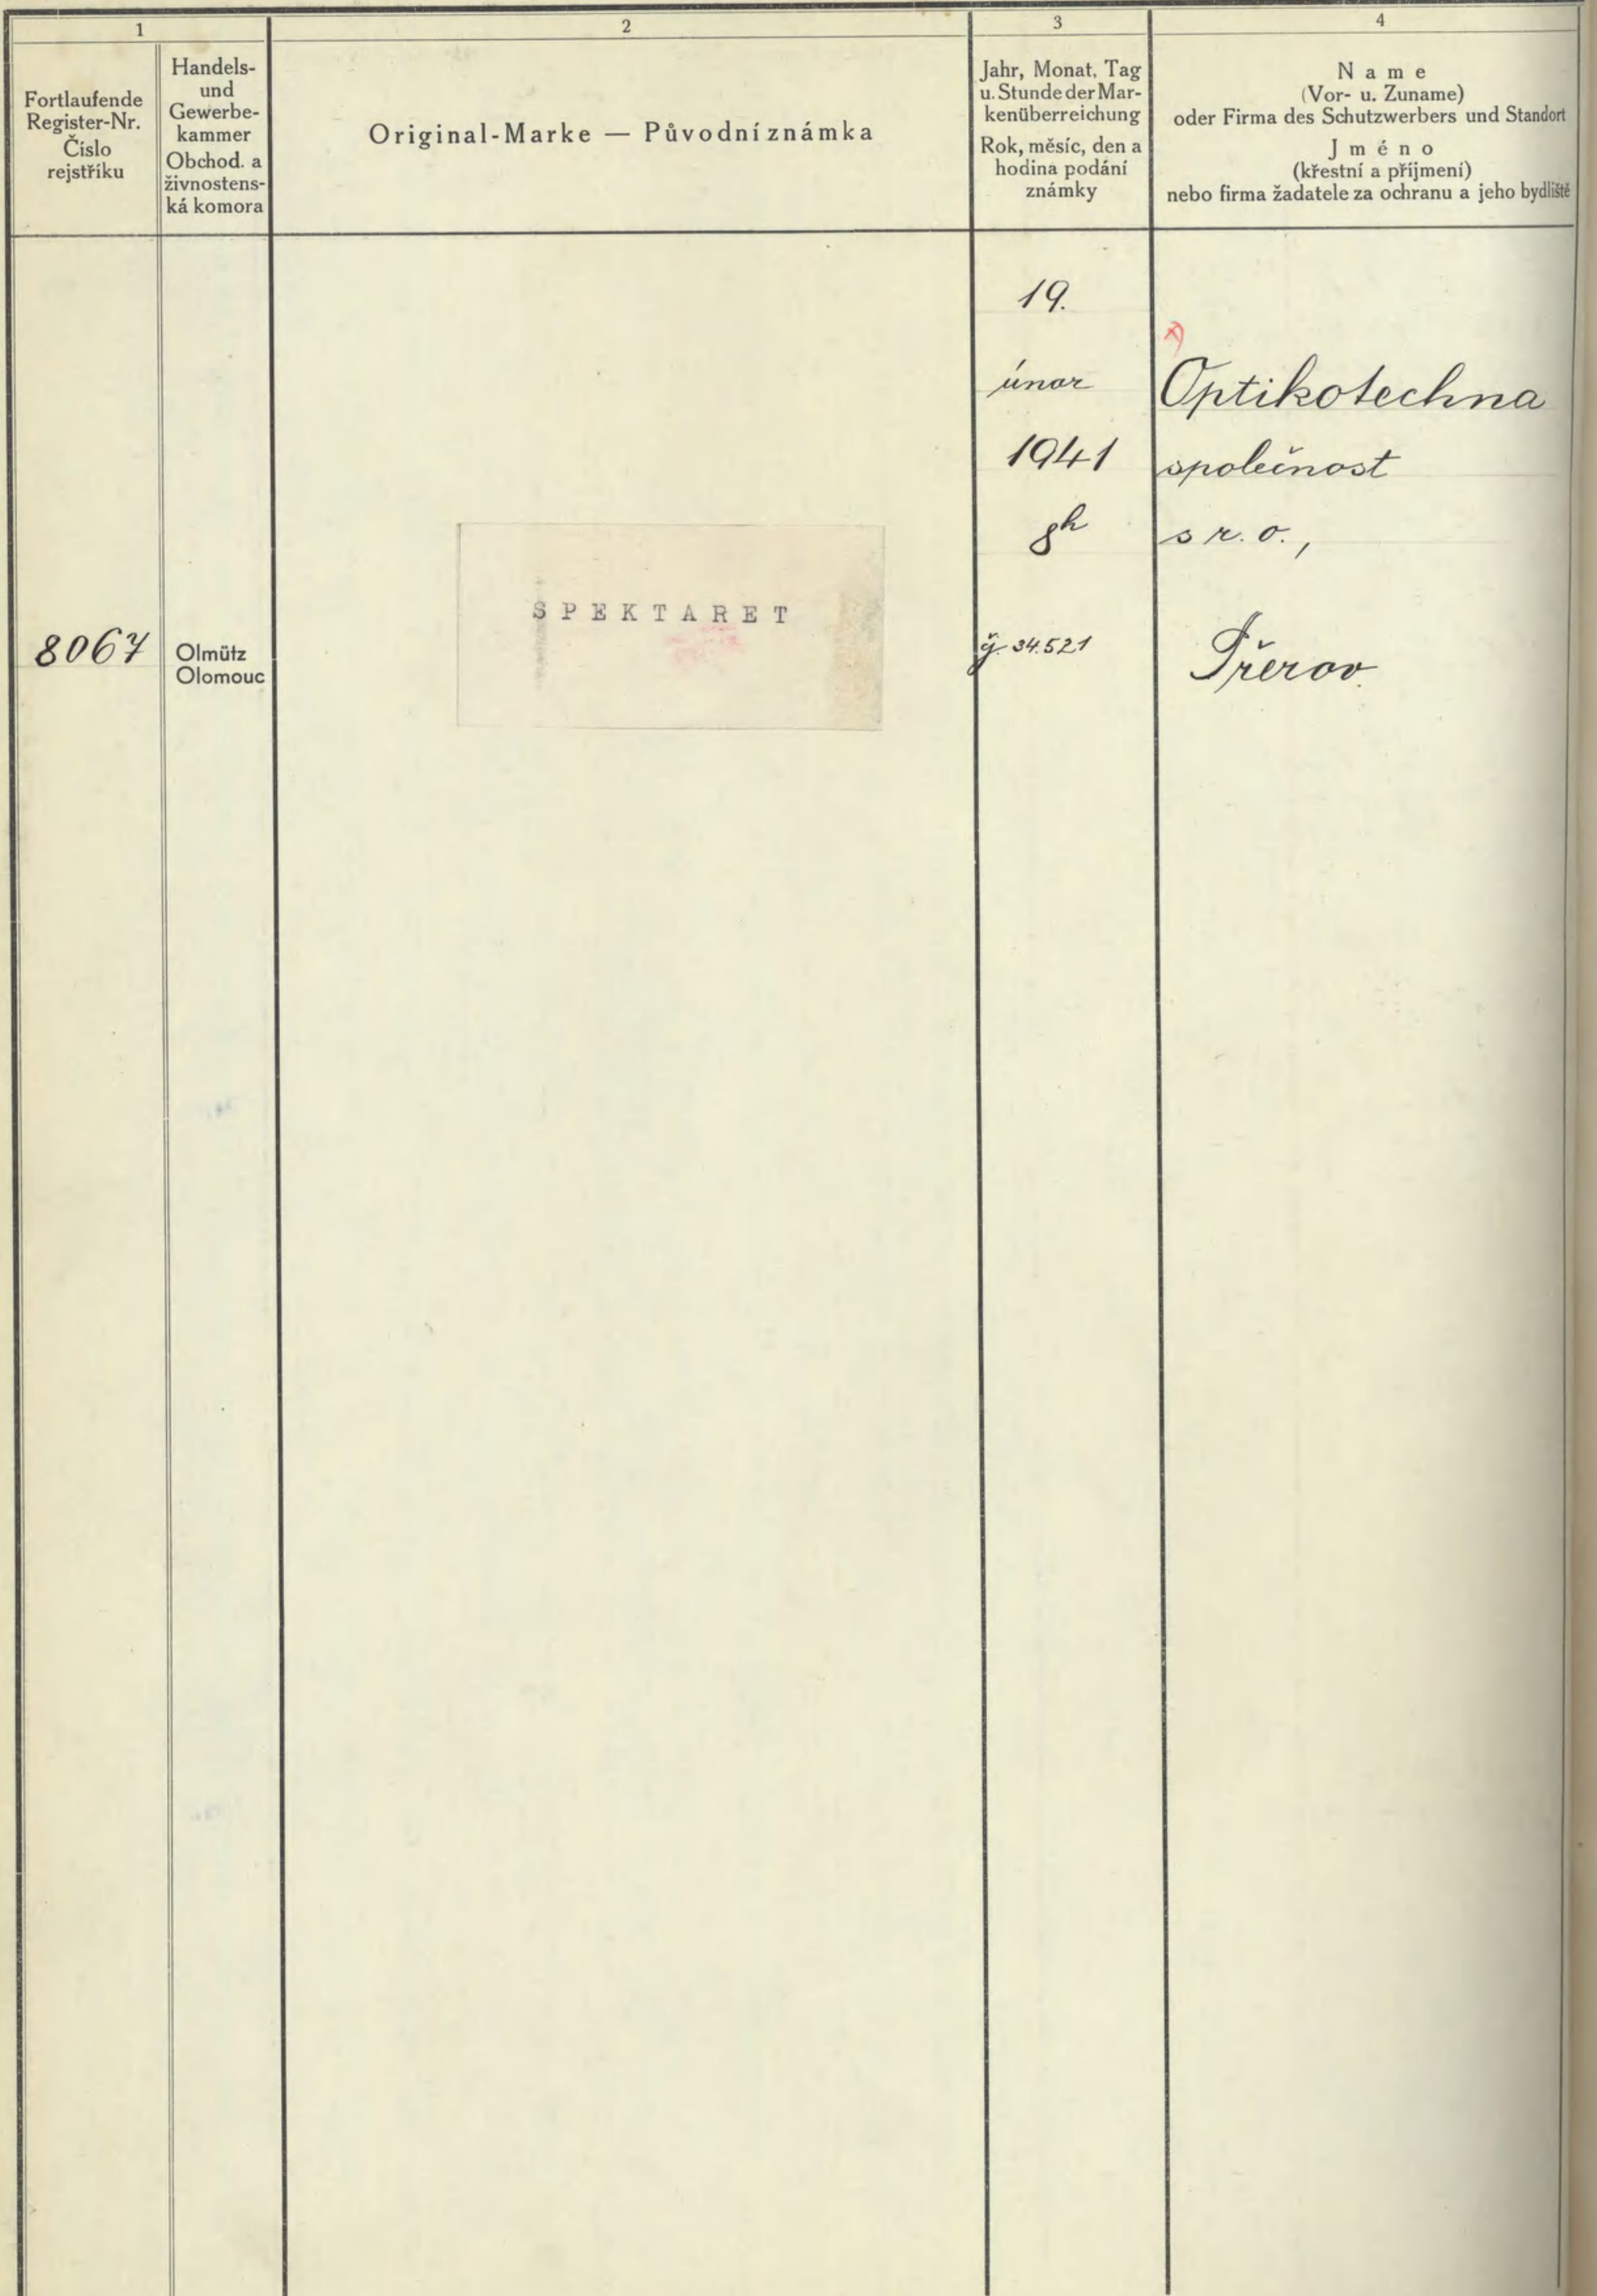 1
2
3
4
Fortlaufende
Register-Nr.
Číslo
rejstříku
Handels-
und
Gewerbe-
kammer
Obchod. a
živnostens-
ká komora
Original-Marke — Původní známka
Jahr, Monat, Tag
u. Stunde der Mar-
kenüberreichung
Rok, měsíc, den a
hodina podání
známky
Name
(Vor- u. Zuname)
oder Firma des Schutzwerbers und Standort
Jméno
(křestní a příjmení)
nebo firma žadatele za ochranu a jeho bydliště
8067
Olmütz
Olomouc
SPEKTARET
19.
únor
1941
8h
34.521
Optikotechna
společnost
s r. o.,
Přerov.